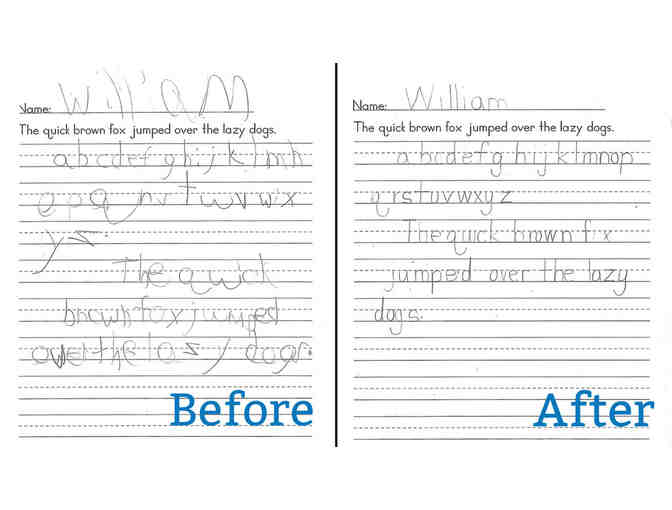 Name: William
The quick brown fox jumped over the lazy dogs.
abcdefghijklmn
yz.
The quick
brown fox jumped
over the lazy dogs.
Before
Name: William
The quick brown fox jumped over the lazy dogs.
abcdefg hijklmnop
qrstuvwxyz
The quick brown fix
jumped over the lazy
dogs.
After